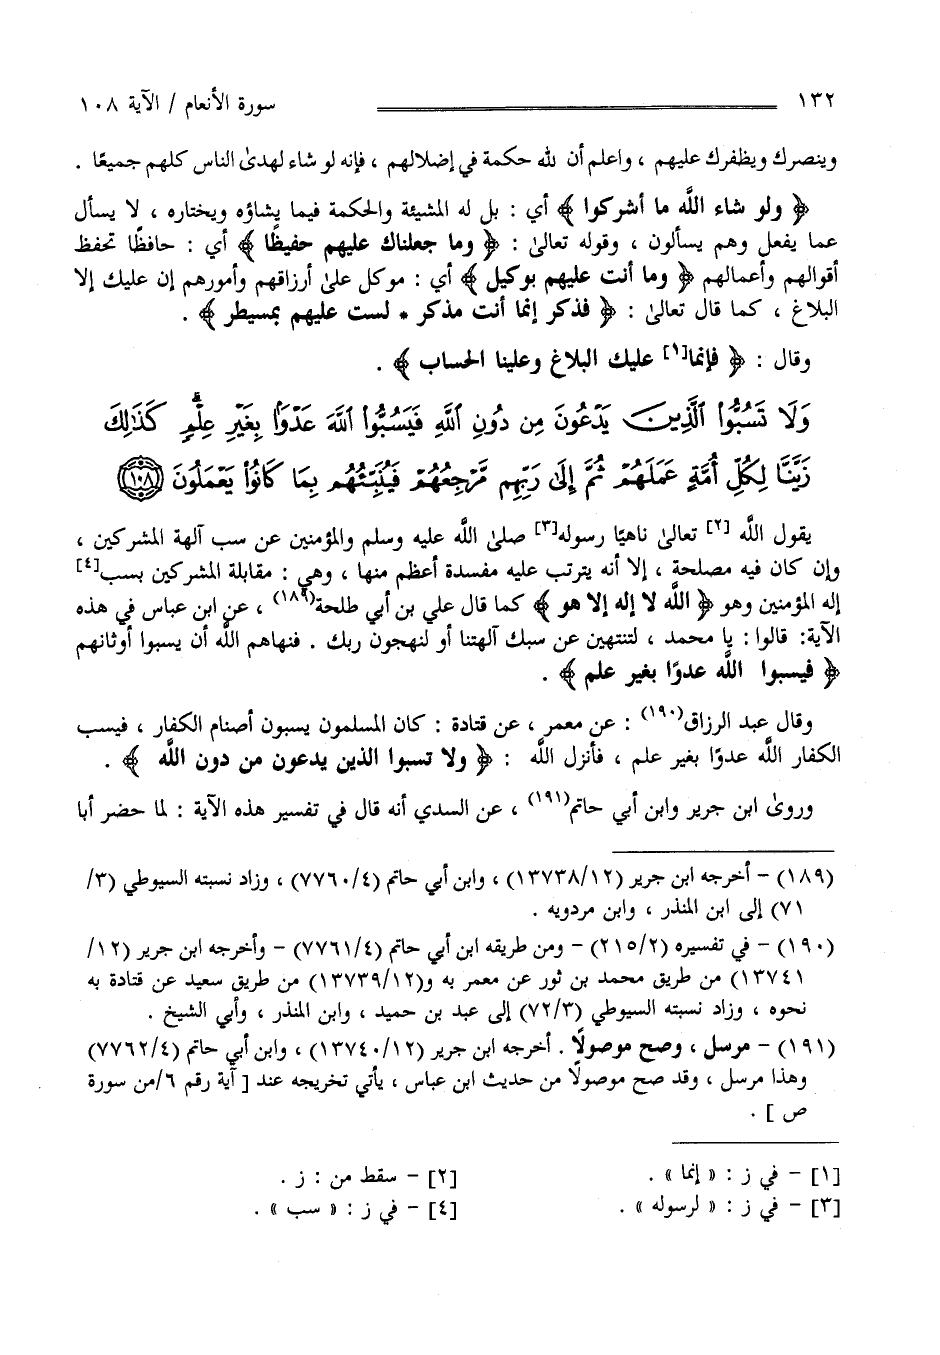 ١٣٢ سورة الأنعام / الآية ١٠٨
وينصرك ويظفرك عليهم ، واعلم أن لله حكمة في إضلالهم ، فإنه لو شاء لهدىٰ الناس كلهم جميعًا .
﴿ ولو شاء اللَّه ما أشركوا ﴾ أي : بل له المشيئة والحكمة فيما يشاؤه ويختاره ، لا يسأل
عما يفعل وهم يسألون ، وقوله تعالىٰ : ﴿ وما جعلناك عليهم حفيظًا ﴾ أي : حافظًا تحفظ
أقوالهم وأعمالهم ﴿ وما أنت عليهم بوكيل ﴾ أي : موكل علىٰ أرزاقهم وأمورهم إن عليك إلا
البلاغ ، كما قال تعالىٰ : ﴿ فذكر إنما أنت مذكر * لست عليهم بمسيطر ﴾ .
وقال : ﴿ فإنما[١] عليك البلاغ وعلينا الحساب ﴾ .
وَلَا تَسُبُّوا۟ ٱلَّذِينَ يَدْعُونَ مِن دُونِ ٱللَّهِ فَيَسُبُّوا۟ ٱللَّهَ عَدْوًۢا بِغَيْرِ عِلْمٍ ۗ كَذَٰلِكَ
زَيَّنَّا لِكُلِّ أُمَّةٍ عَمَلَهُمْ ثُمَّ إِلَىٰ رَبِّهِم مَّرْجِعُهُمْ فَيُنَبِّئُهُم بِمَا كَانُوا۟ يَعْمَلُونَ ١٠٨
يقول اللَّه [٢] تعالىٰ ناهيًا رسوله[٣] صلىٰ اللَّه عليه وسلم والمؤمنين عن سب آلهة المشركين ،
وإن كان فيه مصلحة ، إلا أنه يترتب عليه مفسدة أعظم منها ، وهي : مقابلة المشركين بسب[٤]
إله المؤمنين وهو ﴿ اللَّه لا إله إلا هو ﴾ كما قال علي بن أبي طلحة(١٨٩) ، عن ابن عباس في هذه
الآية: قالوا : يا محمد ، لتنتهين عن سبك آلهتنا أو لنهجون ربك . فنهاهم اللَّه أن يسبوا أوثانهم
﴿ فيسبوا اللَّه عدوًا بغير علم ﴾ .
وقال عبد الرزاق(١٩٠) : عن معمر ، عن قتادة : كان المسلمون يسبون أصنام الكفار ، فيسب
الكفار اللَّه عدوًا بغير علم ، فأنزل اللَّه : ﴿ ولا تسبوا الذين يدعون من دون اللَّه ﴾ .
وروىٰ ابن جرير وابن أبي حاتم(١٩١) ، عن السدي أنه قال في تفسير هذه الآية : لما حضر أبا
(١٨٩) - أخرجه ابن جرير (١٣٧٣٨/١٢) ، وابن أبي حاتم (٧٧٦٠/٤) ، وزاد نسبته السيوطي (٣/
٧١) إلى ابن المنذر ، وابن مردويه .
(١٩٠) - في تفسيره (٢١٥/٢) - ومن طريقه ابن أبي حاتم (٧٧٦١/٤) - وأخرجه ابن جرير (١٢/
١٣٧٤١) من طريق محمد بن ثور عن معمر به و(١٣٧٣٩/١٢) من طريق سعيد عن قتادة به
نحوه ، وزاد نسبته السيوطي (٧٢/٣) إلى عبد بن حميد ، وابن المنذر ، وأبي الشيخ .
(١٩١) - مرسل ، وصح موصولًا . أخرجه ابن جرير (١٣٧٤٠/١٢) ، وابن أبي حاتم (٧٧٦٢/٤)
وهذا مرسل ، وقد صح موصولًا من حديث ابن عباس ، يأتي تخريجه عند [ آية رقم ٦/من سورة
ص ] .
[١] - في ز : « إنما » . [٢] - سقط من : ز .
[٣] - في ز : « لرسوله » . [٤] - في ز : « سب » .